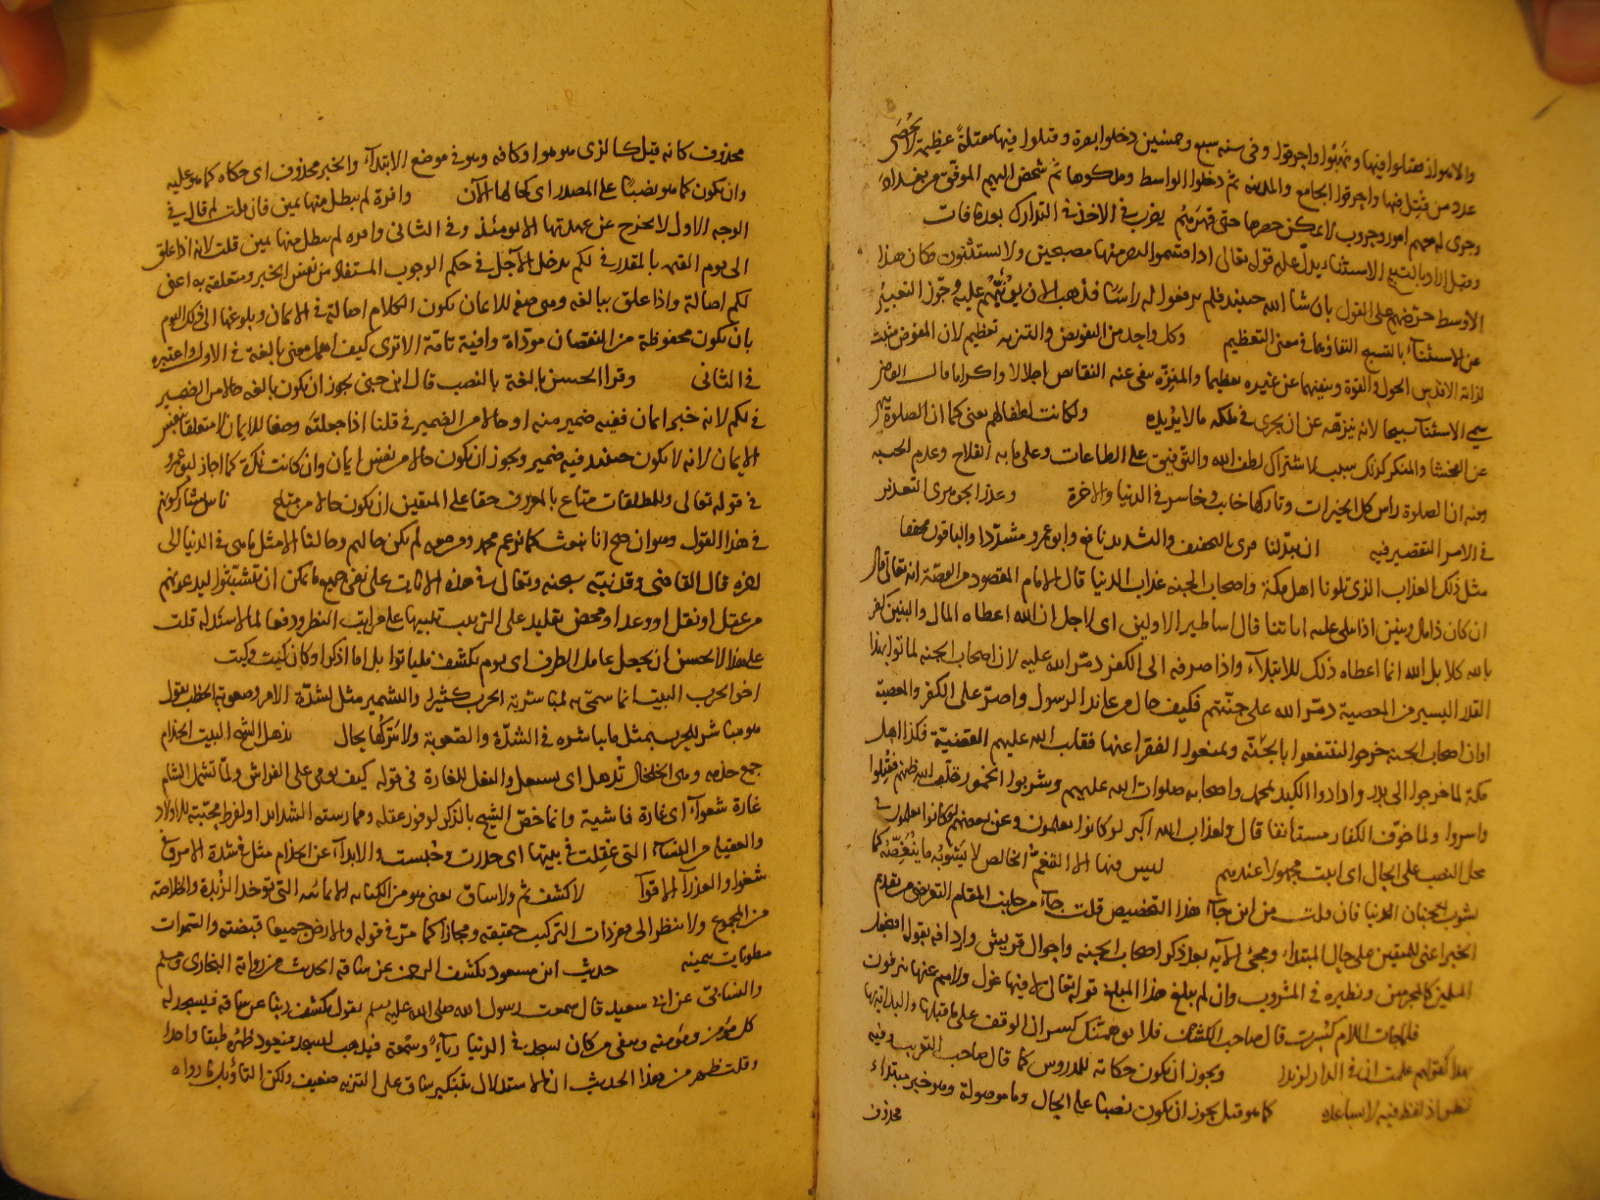 والاموال فقتلوا فيها ونهبوا واحرقوا وفي سنه سبع وخمسين دخلوا بصرة وقتلوا فيها مقتلة عظيمة لا تحصى
عدد من قتل فيها واحرقوا الجامع والمدينه ثم دخلوا الواسط وملكوها ثم شخص اليهم الموفق من بغداد
وجرى له معهم امور وحروب لا يمكن حصرها حتى قهرهم يضرب في الاخذ في التدارك بعد ما فات
وقيل اراد بالتسبيح الاستثناء يدل عليه قوله تعالى اذ اقسموا ليصرمنها مصبحين ولا يستثنون وكان هذا
الاوسط حرضهم على القول بان شا الله حينئذ فلم يرفعوا له راسا
عن الاستثناء بالتسبيح التقاؤهما في معنى التعظيم وكل واحد من التفويض والتنزيه تعظيم لان المفوض مثبت
لذاته الاقدس الحول والقوة وينفيهما عن غيره تعظيما والمنزه ينفي عنه النقائص اجلالا واكراما
سمي الاستثناء تسبيحا لانه نزهه عن ان يجري في ملكه ما لا يريده ولكانت لطفا لهم يعني كما ان الصلوة تنهى
عن الفحشا والمنكر كذلك سبب لاشتراك لطف الله والتوفيق على الطاعات وعلى ما به الفلاح وعدم الخيبه
ومنه ان الصلوة راس كل الخيرات وتاركها خايب وخاسر في الدنيا والاخرة وعذرا الجوهري التعذير
في الامر التقصير فيه ان يبدلنا قرى بالتخفيف والتشديد نافع وابو عمرو مشددا والباقون مخففا
مثل ذلك العذاب الذي بلونا اهل مكة واصحاب الجنه عذاب الدنيا قال الامام المقصود من القصة انه تعالى قال
ان كان ذا مال وبنين اذا تتلى عليه اياتنا قال اساطير الاولين اي لاجل ان الله اعطاه المال والبنين كفر
بالله كلا بل الله انما اعطاه ذلك للابتلاء واذا صرفه الى الكفر دمر الله عليه لان اصحاب الجنه لما اتوا بهذا
القدر اليسير من المعصية دمر الله على جنتهم فكيف حال من عاند الرسول واصر على الكفر والمعصية
او ان اصحاب الجنه خرجوا لينتفعوا بالجنة ويمنعوا الفقراء عنها فقلب الله عليهم القضية فكذا اهل
مكة لما خرجوا الى بدر وارادوا الكيد بمحمد واصحابه صلوات الله عليهم وشربوا الخمور خلف الله ظنهم فقتلوا
واسروا ولما خوف الكفار مستانفا قال ولعذاب الله اكبر لو كانوا يعلمون
محل النصب على الحال اي ابيت مجهولا عندهم ليس فيها الا التنعم الخالص لا يشوبه ما ينغصه كما
يشوب جنان الدنيا فان قلت من اين جاء هذا التخصيص قلت جاء من جانب المقام التعريض من تقديم
الخبر اعني للمتقين على حال المبتداء ومجئ الايه بعد ذكر اصحاب الجنه واحوال قريش وارداف بقوله افنجعل
المسلمين كالمجرمين ونظيره في المشروب وان لم يبلغ هذا المبلغ قوله تعالى لا فيها غول ولا هم عنها ينزفون
فلما جات اللام كسرت قال صاحب الكشاف فلا يوهمنك كسر ان الوقف على ما قبلها والبداية بها
هذا كقولهم علمت ان في الدار لزيدا ويجوز ان يكون حكاية للمدروس كما قال صاحب التقريب وفيه
نظر اذ لفظ فيه لا يساعده كما هو قيل يجوز ان يكون نصبا على الحال وما موصولة وهو خبر مبتداء
محذوف
محذوف كانه قيل كالذي هو هو او كافه وهو في موضع الابتداء والخبر محذوف اي حكاه كما هو عليه
وان يكون كما هو نصبا على المصدر اي كحالها الآن وافرة لم يبطل منها يمين فان قلت لم قال في
الوجه الاول لا يخرج عن عهدتها الا يومئذ وفي الثاني وافره لم يبطل منها يمين قلت لانه اذا علق
الى يوم القيمه بالمقدر في لكم يدخل الآجل في حكم الوجوب المستفاد من نفس الخبر ومتعلقه به اعني
لكم اصالة واذا علق ببالغه وهي صفه للايمان يكون الكلام اصالة في الايمان وبلوغها الى ذلك اليوم
بان يكون محفوظة من النقصان موداة وافية تامة الا ترى كيف اهمل معنى بالغة في الاول واعتبره
في الثاني وقرا الحسن بالغة بالنصب قال ابن جني يجوز ان يكون بالغه حالا من الضمير
في لكم لانه خبر ايمان ففيه ضمير منه او حالا من الضمير في قلنا اذا جعلته وصفا للايمان لا متعلقا بنفس
الايمان لانه لا يكون حينئذ فيه ضمير ويجوز ان يكون حالا من نفس ايمان وان كانت نكرة كما اجاز ابو عمرو
في قوله تعالى وللمطلقات متاع بالمعروف حقا على المتقين ان يكون حالا من متاع ناس يشاركونهم
في هذا القول وهو ان صح انا نبعث كما يزعم محمد ومن معه لم يكن حالهم وحالنا الا مثل ما هي في الدنيا الى
اخره قال القاضي وقد نبه سبحنه وتعالى في هذه الايات على نفي جميع ما يمكن ان يتشبثوا به لدعويهم
من عقل او نقل او وعد او محض تقليد على الترتيب تنبيها على مراتب النظر ودفعا لما لا سند له قلت
على هذا الاحسن ان يجعل عامل الظرف اي يوم يكشف فلياتوا بل اما اذكر او كان كيت وكيت
اخو الحرب البيت انما سمي به لمباشرته الحرب كثيرا والتشمير مثل لشدة الامر وصعوبة الخطب يقول
هو مباشر للحرب بمثل ما يباشره في الشدة والصعوبة ولا يتركها بحال تذهل الشيخ البيت الخدام
جمع خدمه وهي الخلخال تذهل اي يشغل والفعل للغارة في قوله كيف نومي على الفراش ولما تشمل الشام
غارة شعواء اي غارة فاشية وانما خص الشيخ بالذكر لوفور عقله وممارسته الشدائد او لفرط محبته للاولاد
والعقيله من النساء التي عقلت في بيتها اي خدرت وحبست والابداء عن الخدام مثل في شدة الامر
شغوا والعذراء الاقواء لا كشف ثم ولا ساق يعني هو من الكنايه الايمائيه التي توخذ الزبدة والخلاصة
من المجموع ولا ينظر الى مفردات التركيب حقيقه ومجازا كما مر في قوله والارض جميعا قبضته والسموات
مطويات بيمينه حديث ابن مسعود يكشف الرحمن عن ساقه الحديث من رواية البخاري ومسلم
والنسائي عن ابي سعيد قال سمعت رسول الله صلى الله عليه وسلم يقول يكشف ربنا عن ساقه فيسجد له
كل مؤمن ومؤمنه ويبقى من كان يسجد في الدنيا رياء وسمعة فيذهب ليسجد فيعود ظهره طبقا واحدا
وقلت ظهر من هذا الحديث ان الاستدلال بتنكير ساق على التنزيه ضعيف ولكن التاويل ما رواه